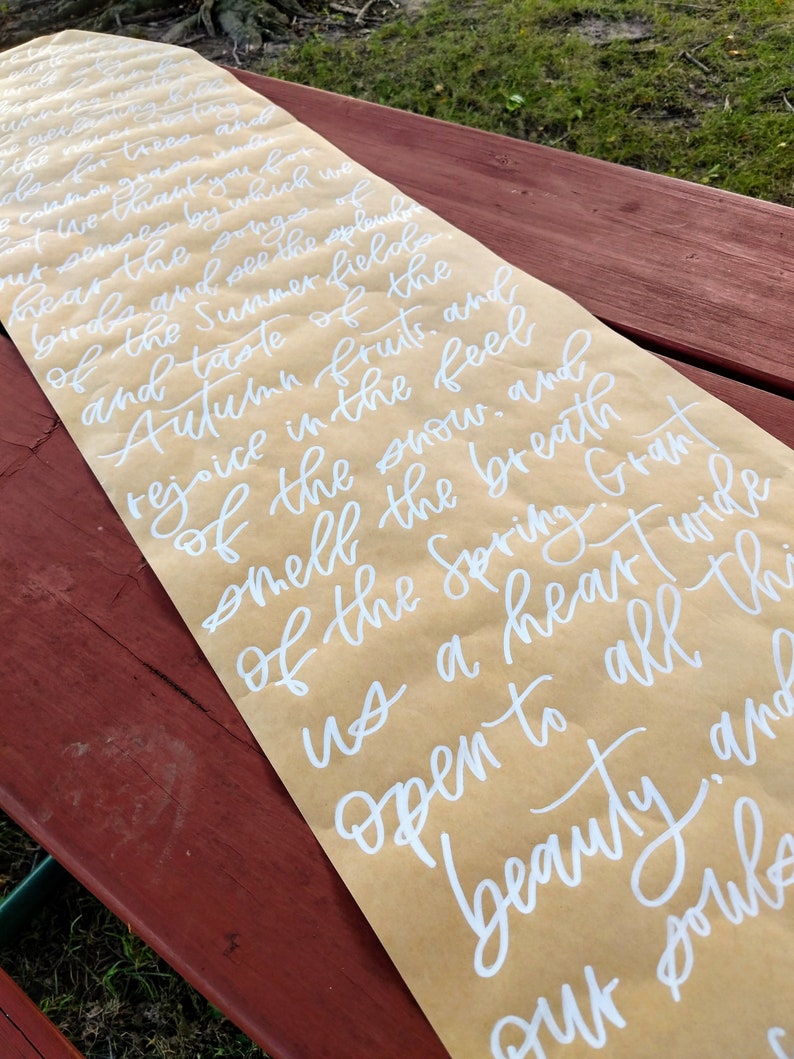 running water
everlasting hills
the never resting
for trees and
common grass under
We thank you for
our senses by which we
hear the songs of
birds, and see the splendor
of the Summer fields,
and taste of the
Autumn fruits, and
rejoice in the feel
of the snow, and
smell the breath
of the Spring. Grant
us a heart wide
open to all thi
beauty, and
our souls
our